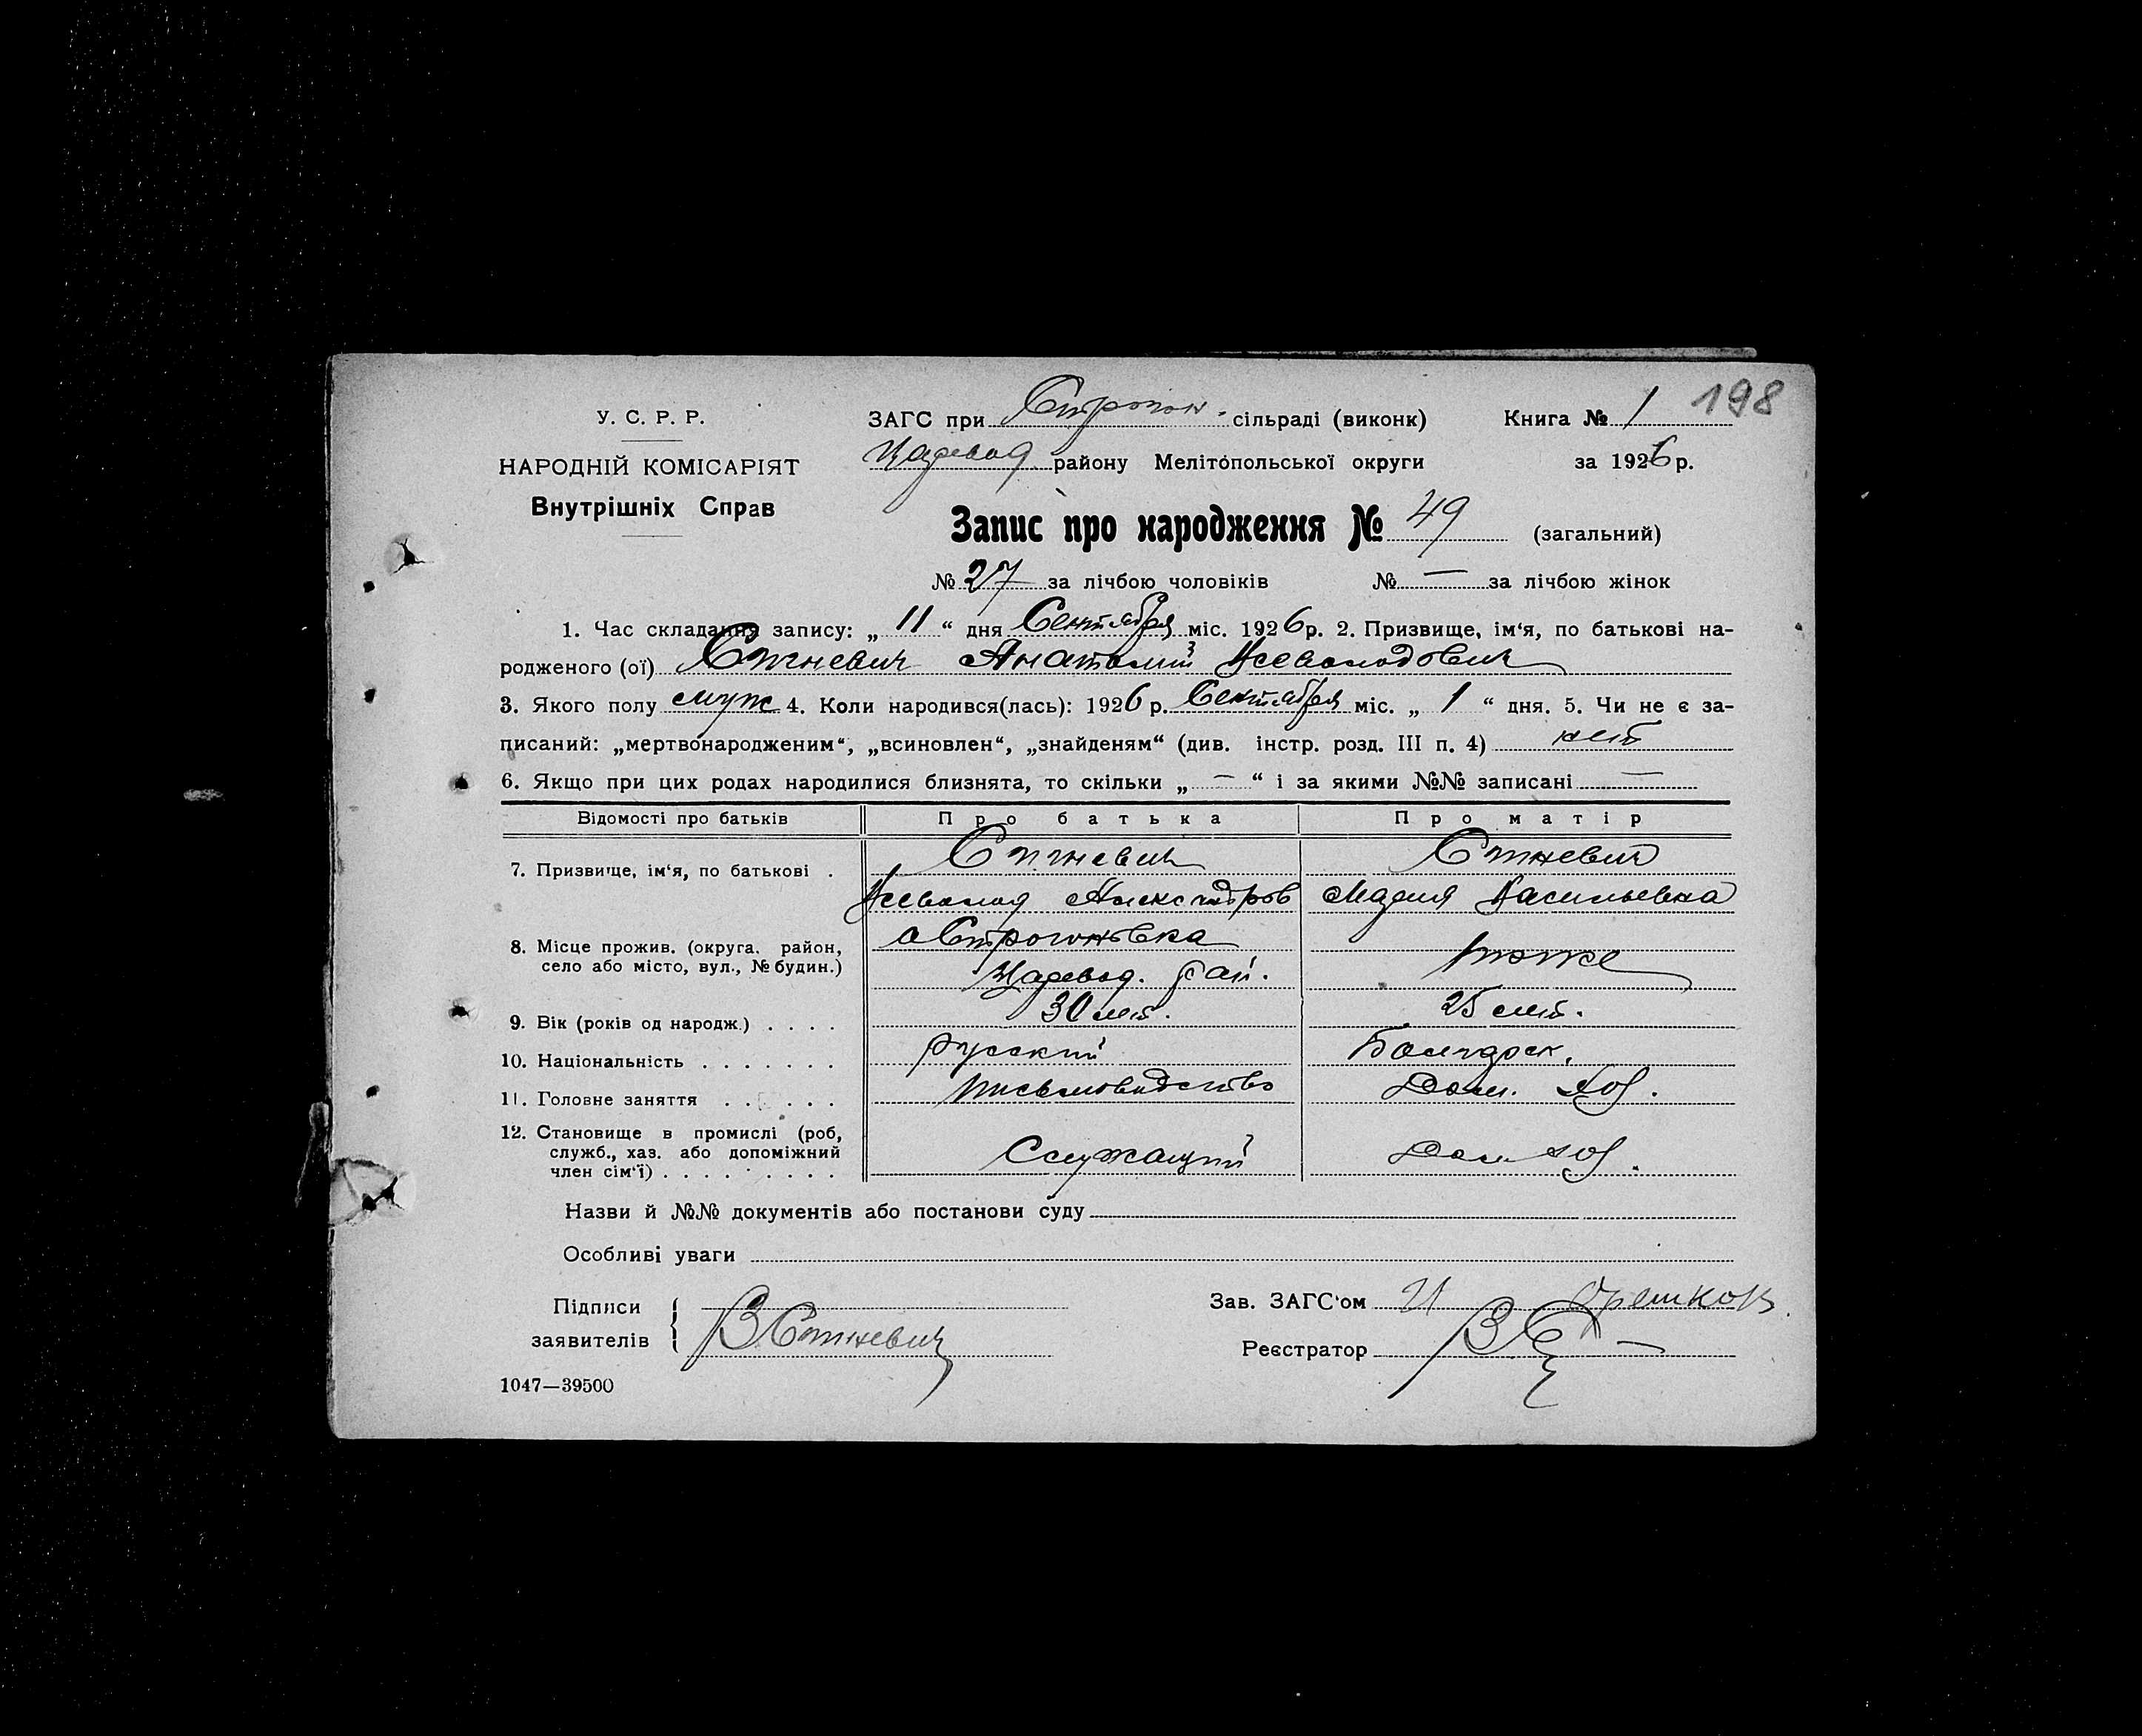 198
У. С. Р. Р.
ЗАГС при Строгон. сільраді (виконк) Книга № 1
НАРОДНІЙ КОМІСАРІЯТ
Царевод. району Мелітопольської округи за 1926 р.
Внутрішніх Справ
Запис про народження № 49 (загальний)
№ 27 за лічбою чоловіків № — за лічбою жінок
1. Час складання запису: „ 11 “ дня Сентября міс. 1926 р. 2. Призвище, ім‘я, по батькові на-
родженого (ої) Анатолий Всеволодович
3. Якого полу муж 4. Коли народився(лась): 1926 р. Сентября міс. „ 1 “ дня. 5. Чи не є за-
писаний: „мертвонародженим“, „всиновлен“, „знайденям“ (див. інстр. розд. III п. 4) нет
6. Якщо при цих родах народилися близнята, то скільки „ — “ і за якими №№ записані —
Відомості про батьків Про батька Про матір
7. Призвище, ім‘я, по батькові .
Всеволод Александров Мария Васильевна
8. Місце прожив. (округа, район, село або місто, вул., № будин.) с Строгоновка
Царевод. рай. тоже
9. Вік (років од народж.) . . . . 30 лет. 25 лет.
10. Національність . . . . . . . русский Болгарск.
11. Головне заняття . . . . . . письмоводство Дом. хоз.
12. Становище в промислі (роб, служб., хаз. або допоміжний член сім‘ї) . . . . . . . . Служащий Дом. хоз.
Назви й №№ документів або постанови суду
Особливі уваги
Підписи заявителів {
Зав. ЗАГС‘ом
Реєстратор
1047—39500